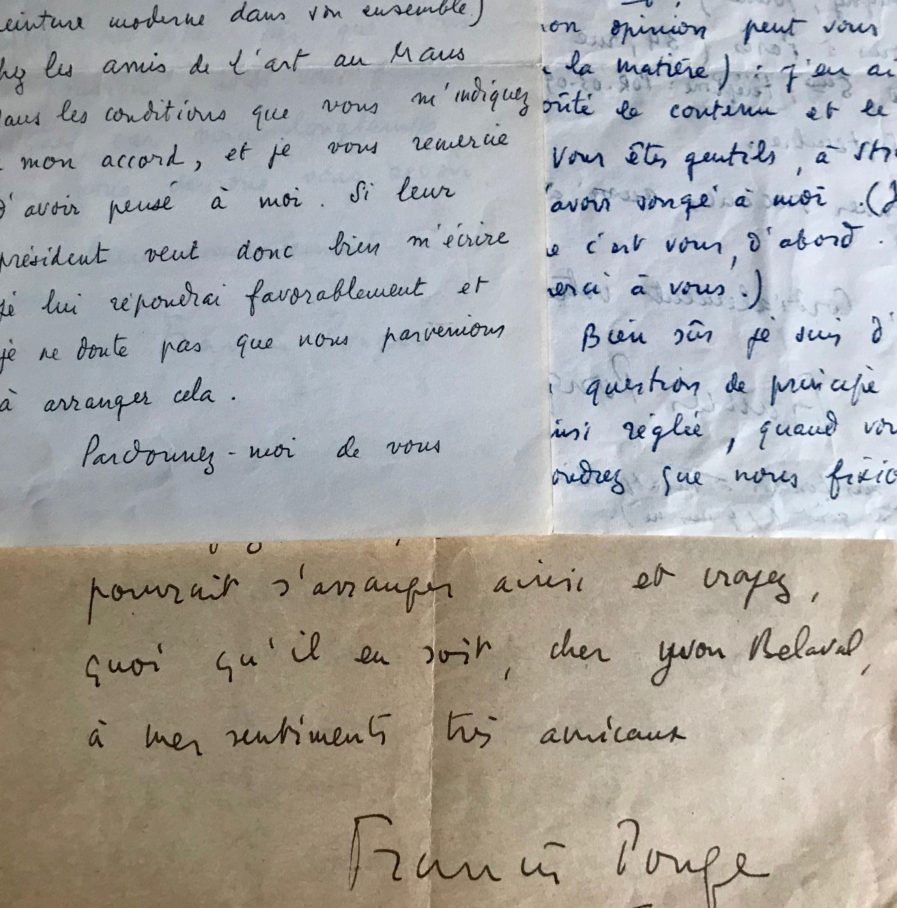 peinture moderne dans son ensemble)
chez les amis de l'art au Mans
dans les conditions que vous m'indiquez
mon accord, et je vous remercie
d'avoir pensé à moi. Si leur
président veut donc bien m'écrire
je lui répondrai favorablement et
je ne doute pas que nous parvenions
à arranger cela.
Pardonnez-moi de vous
on opinion peut vous
la matière) : j'en ai
oûté le contenu et le
Vous êtes gentils, à
avoir songé à moi. (J
e c'est vous, d'abord.
erci à vous.)
Bien sûr je suis d'
question de principe
insi réglée, quand vou
oudrez que nous fixio
pourrait s'arranger ainsi et croyez,
quoi qu'il en soit, cher Yvon Belaval,
à mes sentiments très amicaux
Francis Ponge